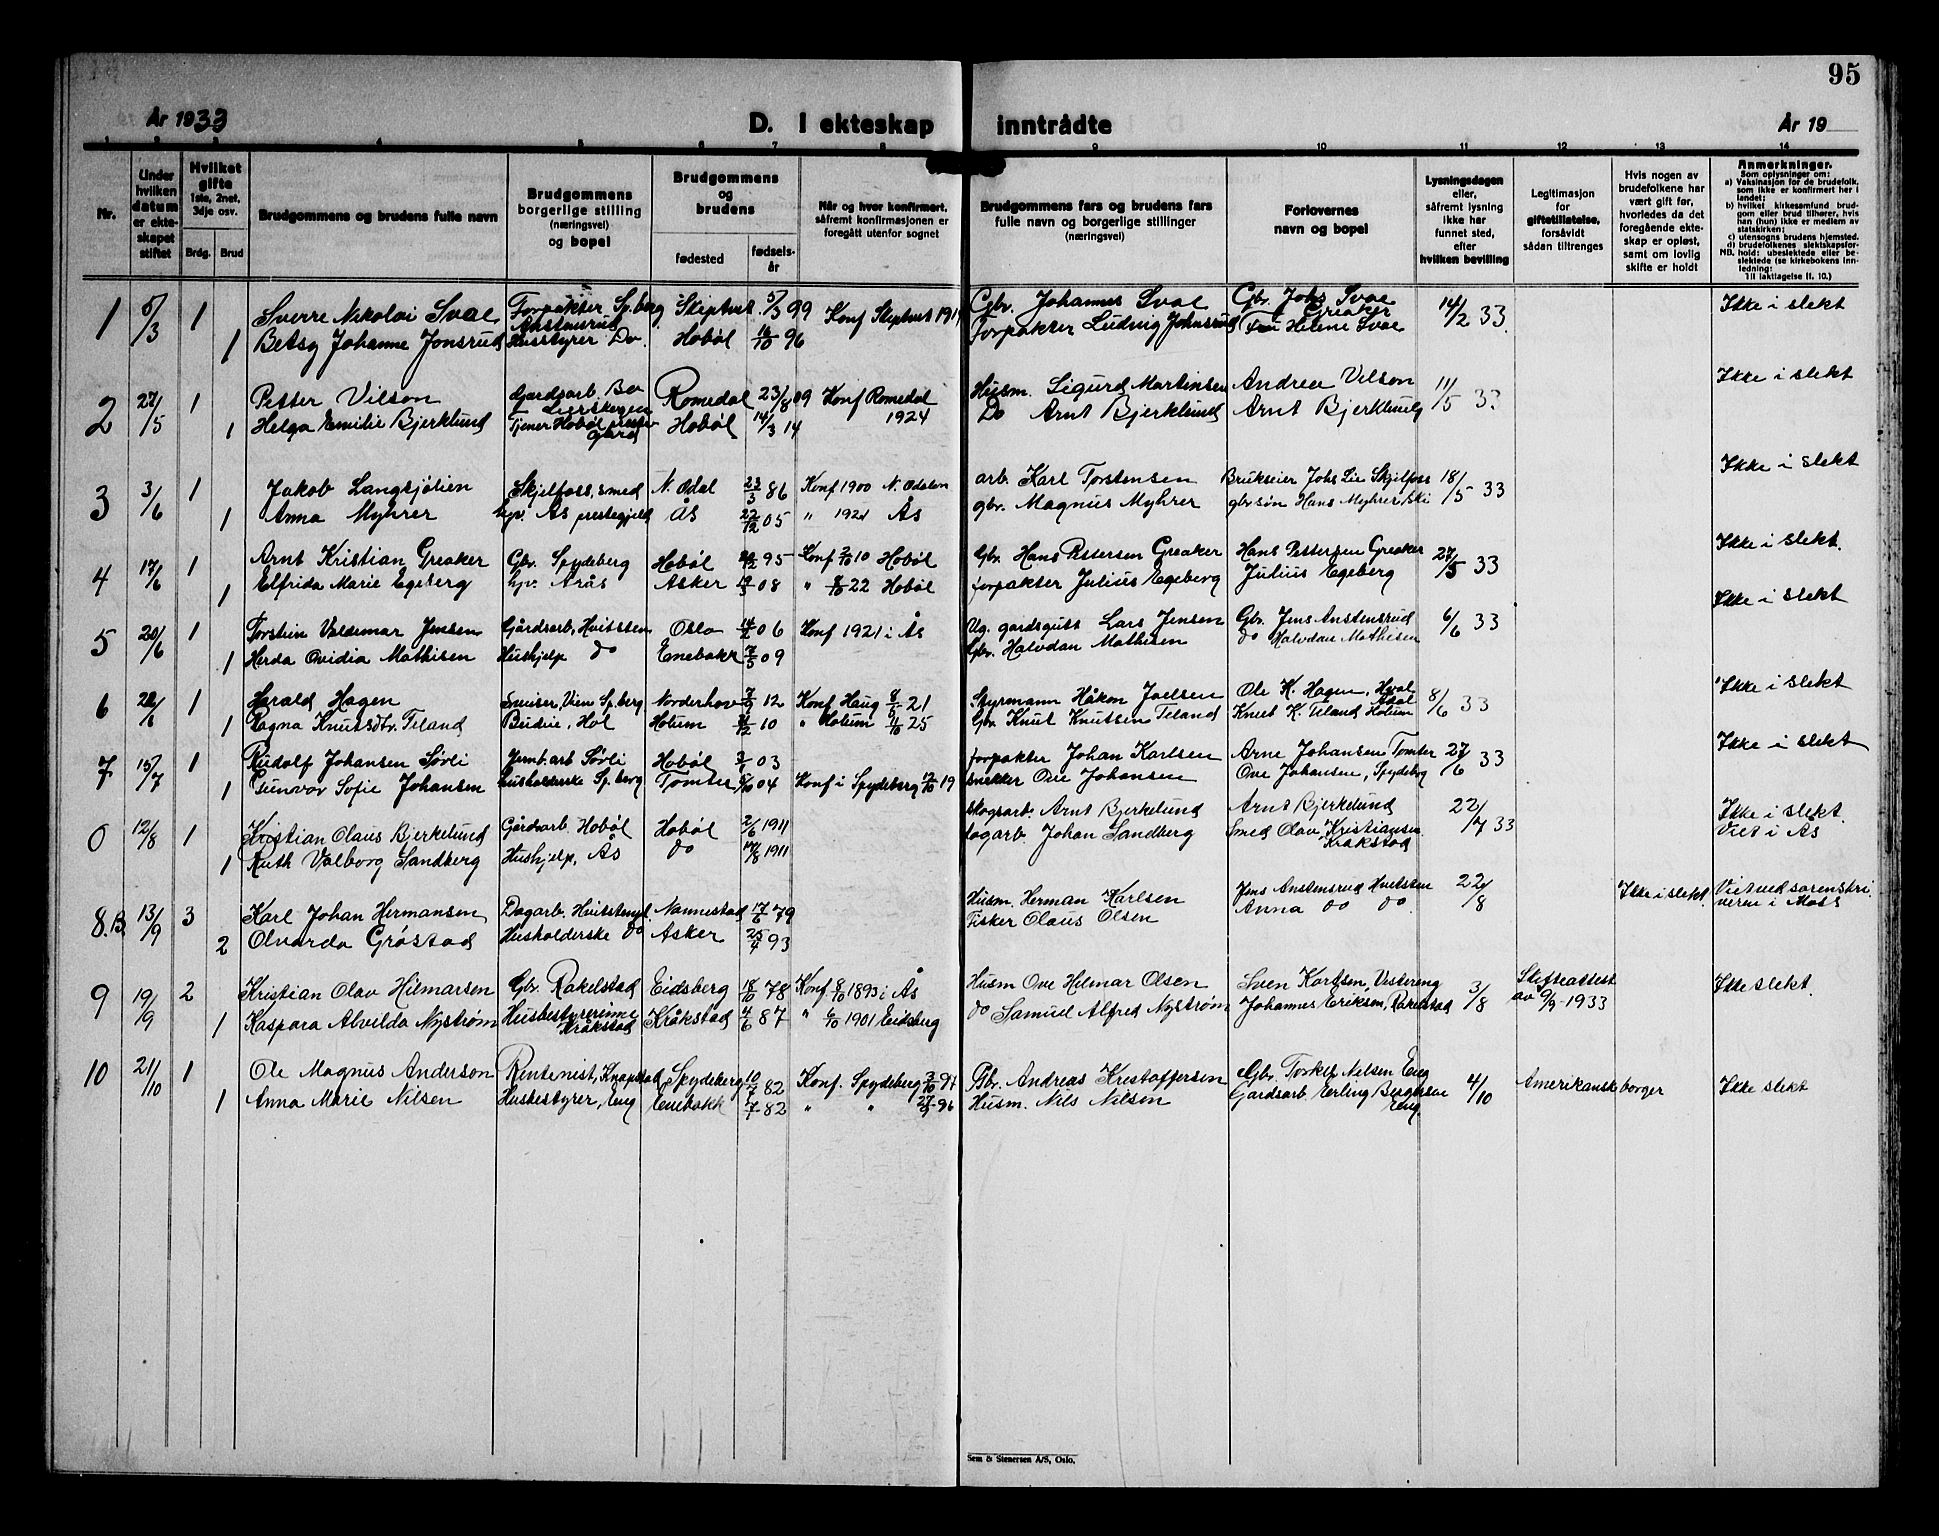 95
År 1933
D. I ekteskap inntrådte
År 19
1 2 3 4 5 6 7 8 9 10 11 12 13 14
Nr.
Under hvilken datum er ekteskapet stiftet
Hvilket gifte 1ste, 2net, 3dje osv.
Brdg. Brud
Brudgommens og brudens fulle navn
Brudgommens borgerlige stilling (næringsvei) og bopel
Brudgommens og brudens
fødested
fødselsår
Når og hvor konfirmert, såfremt konfirmasjonen er foregått utenfor sognet
Brudgommens fars og brudens fars fulle navn og borgerlige stillinger (næringsvei)
Forlovernes navn og bopel
Lysningsdagen eller, såfremt lysning ikke har funnet sted, efter hvilken bevilling
Legitimasjon for giftetillatelse, forsåvidt sådan tiltrenges
Hvis nogen av brudefolkene har vært gift før, hvorledes da det foregående ekteskap er opløst, samt om lovlig skifte er holdt
Anmerkninger.
Som oplysninger om:
a) Vaksinasjon for de brudefolk, som ikke er konfirmert her i landet;
b) hvilket kirkesamfund brudgom eller brud tilhører, hvis han (hun) ikke er medlem av statskirken;
c) utensogns brudens hjemsted.
d) brudefolkenes slektskapsforhold: ubeslektede eller beslektede (se kirkebokens innledning:
NB.
Til iakttagelse II. 10.)
1 5/3 1 Sverre Nikolai Svae Forpakter Sp.berg Skiptvet 5/3 99 Konf Skiptvet Gbr. Johannes Svae Gbr. Johs Svae 14/2 33 Ikke i slekt
Greaker
1 Betsy Johanne Jonsrud Husstyrer Do. Hobøl 16/10 96 Forpakter Ludvig Johnsrud Fru Helene Svae
2 27/5 1 Petter Vilson Gardsarb. Romedal 23/8 09 Konf Romedal Husm. Sigurd Martinsen Andrea Vilson 11/5 33 Ikke i slekt
1 Helga Emilie Bjerklund Tjener Hobøl prestegård Hobøl 14/3 14 1924 Do Arnt Bjerklund Arnt Bjerklund
3 3/6 1 Jakob Langsjølien Skjelfoss, smed N. Odal 23/3 86 Konf 1900 N. Odalen arb. Karl Torstensen Brukseier Johs Lie Skjelfoss 18/5 33 Ikke i slekt
1 Anna Myhrer hjv. Ås prestegjeld Ås 22/12 05 " Ås gbr. Magnus Myhrer gbr søn Hans Myhrer Ski
4 17/6 1 Arnt Kristian Greaker Gbr. Spydeberg Hobøl 95 Konf 2/10 10 Hobøl Gbr. Hans Pettersen Greaker Hans Pettersen Greaker 27/5 33 Ikke i slekt.
1 Elfrida Marie Egeberg hjv. Arås Asker 08 " 8/10 22 Hobøl forpakter Julius Egeberg Julius Egeberg
5 20/6 1 Torstein Valdemar Jensen Gårdsarb, Hvitsten Oslo 06 Konf 1921 i Ås Ug. gardsgutt Lars Jensen Gbr. Jens Anstensrud 6/6 33 Ikke i slekt
1 Herda Ovidia Mathisen Hushjelp do Enebakk 7/5 09 Gbr. Halvdan Mathisen do Halvdan Mathisen
6 22/6 1 Harald Hagen Smiser, Vien Sp.berg Norderhov 12 Konf Haug 21 Styrmann Håkon Joelsen Ole K. Hagen, Hval 8/6 33 Ikke i slekt
Ådal
1 Ragna Knutsdtr. Tiland Budeie, Hol Holum 10 " Holum 25 Gbr. Knut Knutsen Tiland Knut K. Tiland Holum
7 15/7 1 Rudolf Johansen Sørli Jernb.arb Sørli Hobøl 03 forpakter Johan Karlsen Arne Johansen Tomter 27/6 33 Ikke i slekt
1 Gunvor Sofie Johansen husholderske Sp.berg Tomter 04 Konf i Spydeberg 12/10 19 snekker Ove Johansen Ove Johansen, Spydeberg
0 12/8 1 Kristian Olaus Bjerkelund Gårdsarb. Hobøl Hobøl 2/6 1911 skogsarb. Arnt Bjerkelund Arnt Bjerkelund 22/7 33 Ikke i slekt.
Viet i Ås
1 Ruth Valborg Sandberg Hushjelp, Ås do 17/8 1911 dagarb. Johan Sandberg Smed Olav Kristiansen
Kråkstad
8.B. 13/9 3 Karl Johan Hermansen Dagarb. Hvitsten Nannestad 17/6 79 Husm. Herman Karlsen Jens Anstensrud Hvitsten 22/8 Ikke i slekt. Viet ved sorenskriveren i Moss
2 Olvarda Grøstad Husholderske do Asker 25/4 93 Fisker Olaus Olsen Anna do do
9 19/9 2 Kristian Olav Hilmarsen Gbr. Rakelstad Eidsberg 18/10 78 Konf. 8/10 1893 i Ås Husm Ove Helmar Olsen Sven Karlsen, Vestereng 3/8 Skifteattest av 9/9-1933 Ikke slekt.
1 Kaspara Alvilda Nystrøm Husbestyrerinne Kråkstad Kråkstad 4/6 87 " 6/10 1901 Eidsberg do Samuel Alfred Nystrøm Johannes Eriksen, Rakelstad
10 21/10 1 Ole Magnus Anderson Rentenist, Knapstad Spydeberg 10/7 82 Konf. Spydeberg Gbr. Andreas Kristoffersen Gbr. Torkel Nilsen Eng 4/10 Amerikansk borger Ikke slekt
1 Anna Marie Nilsen Husbestyrer, Eng Enebakk 7/7 82 " " 96 Husm. Nils Nilsen Gardsarb. Erling Birgersen
Eng.
Sem & Stenersen A/S, Oslo.